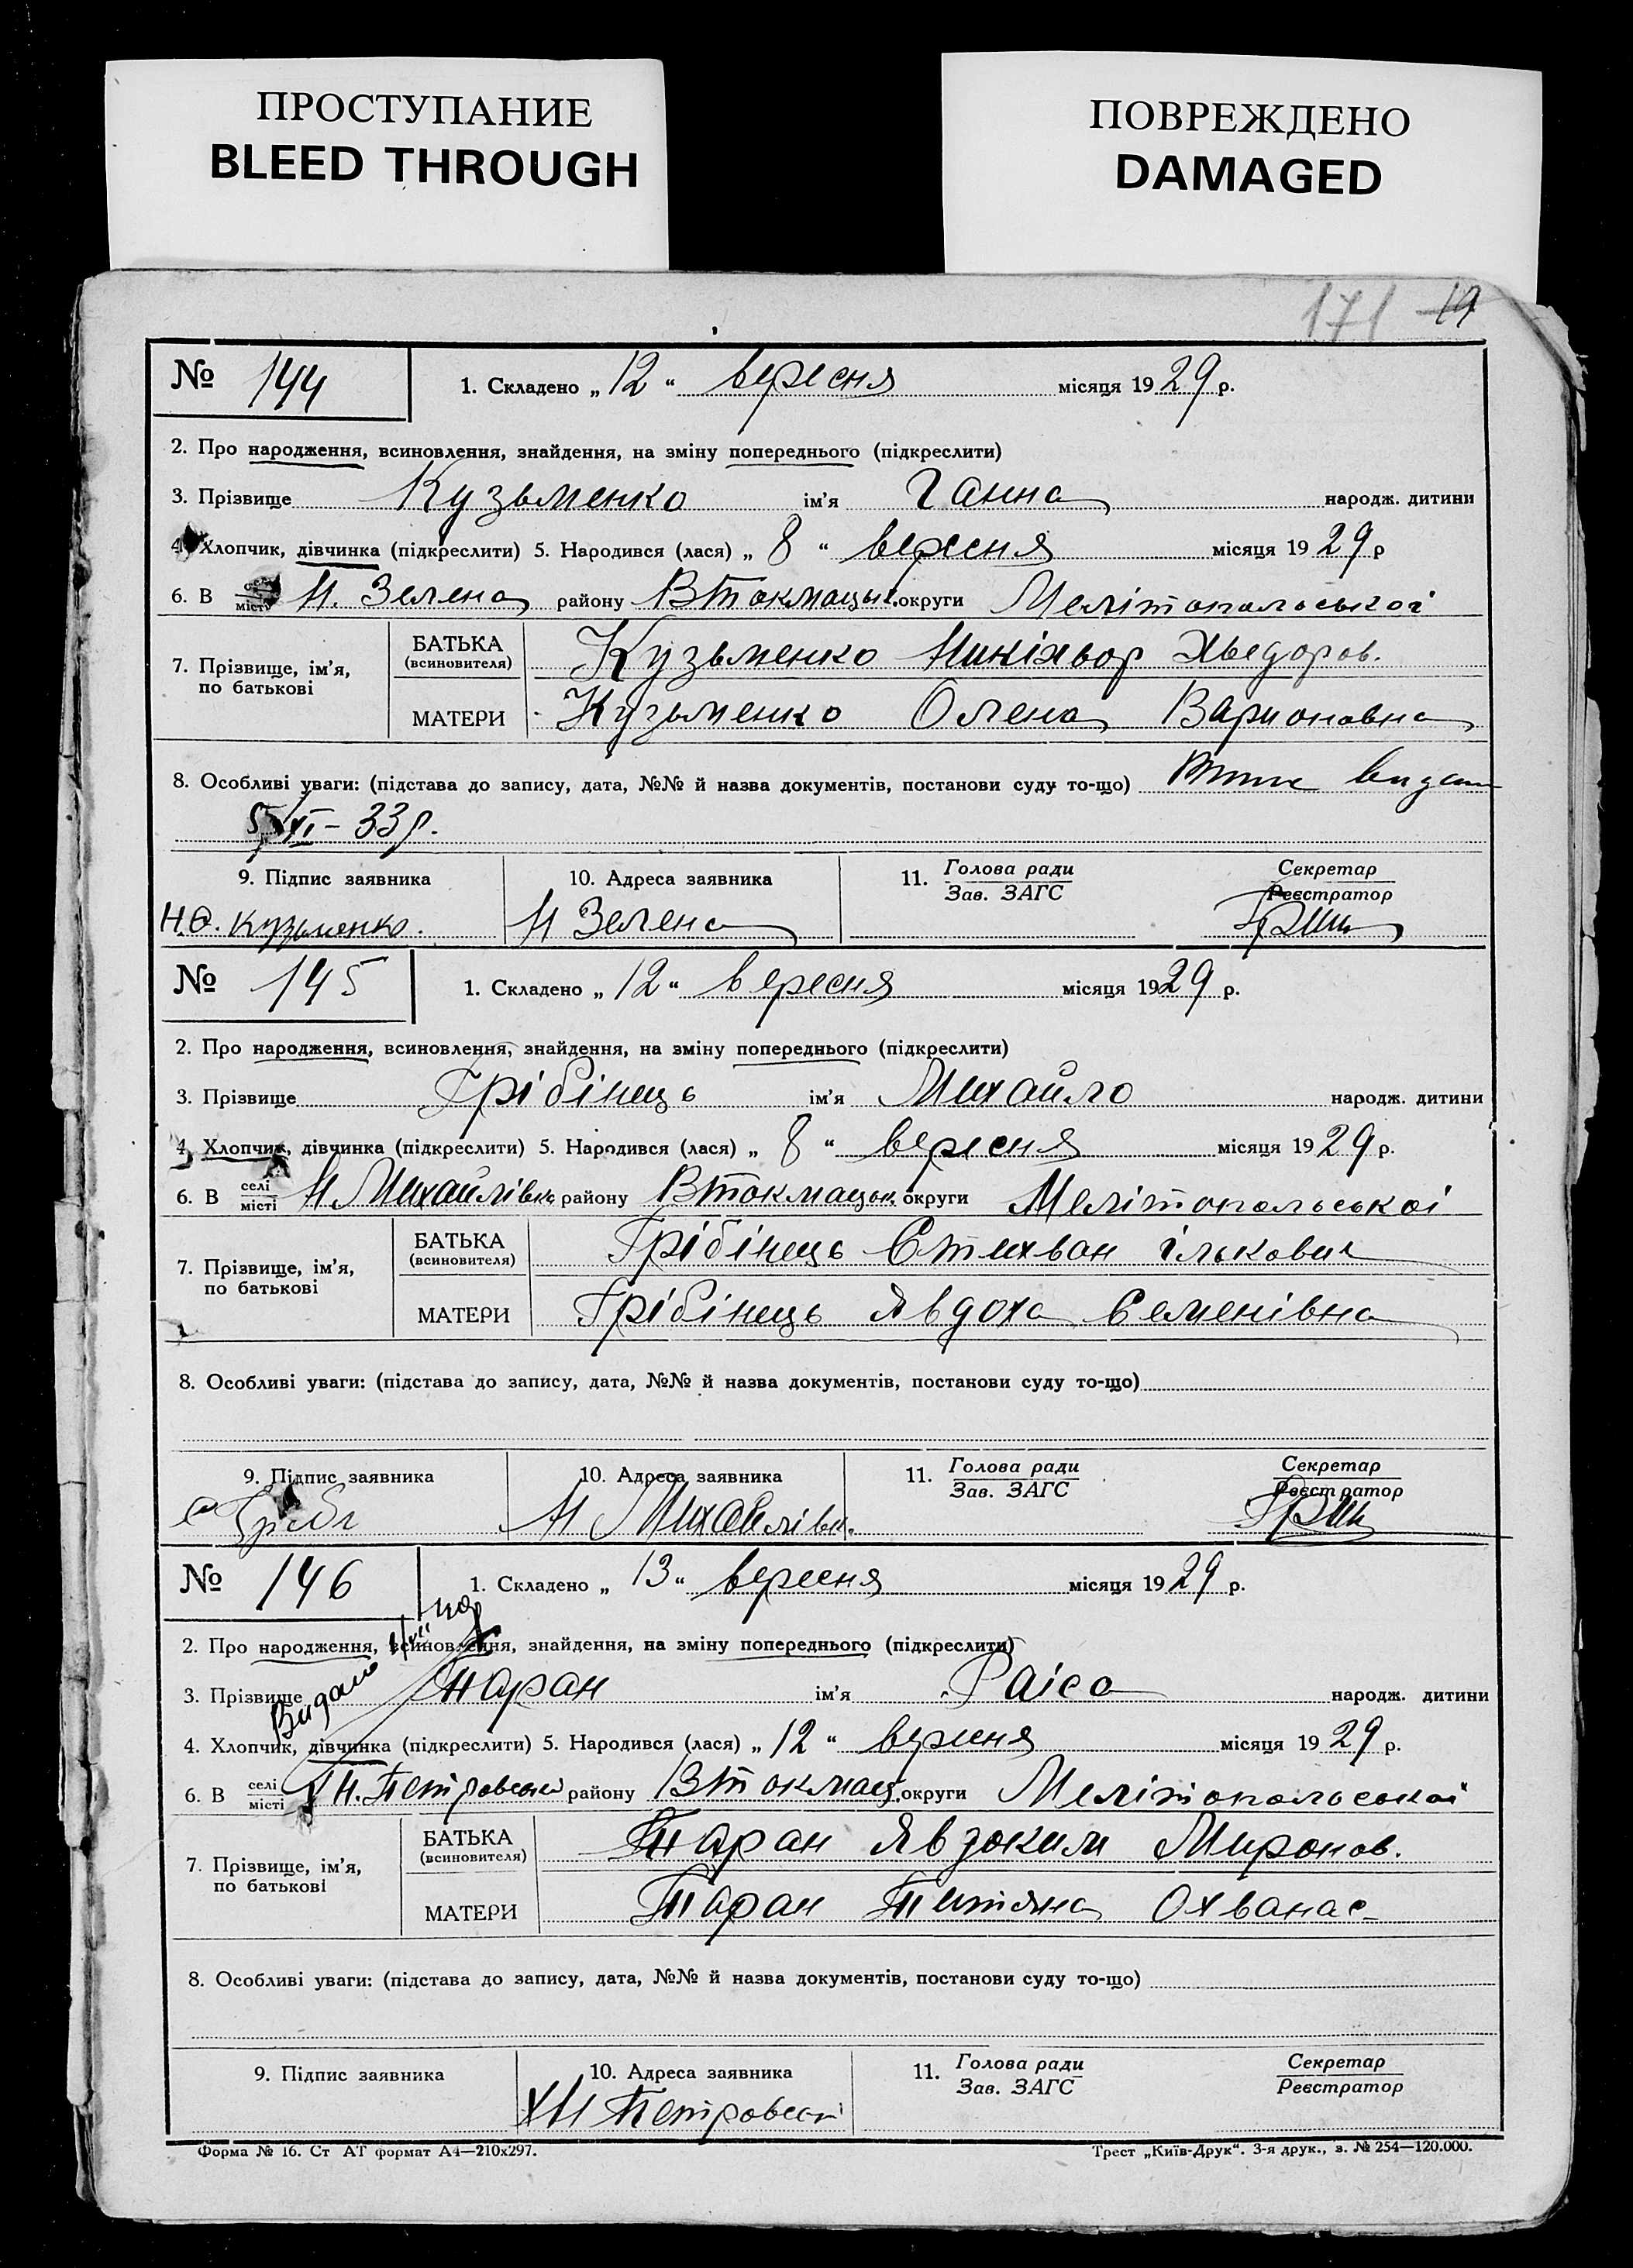 ПРОСТУПАНИЕ
BLEED THROUGH
ПОВРЕЖДЕНО
DAMAGED
171 19
№ 144 1. Складено „ 12 “ вересня місяця 1929 р.
2. Про народження, всиновлення, знайдення, на зміну попереднього (підкреслити)
3. Прізвище Кузьменко ім'я Ганна народж. дитини
4. Хлопчик, дівчинка (підкреслити) 5. Народився (лася) „ 8 “ вересня місяця 1929 р
6. В селі місті Н. Зелена району Втокмацьк. округи Мелітопольської
7. Прізвище, ім'я, по батькові
БАТЬКА (всиновителя) Кузьменко Микіхвор Хведоров.
МАТЕРИ Кузьменко Олена Варионовна
8. Особливі уваги: (підстава до запису, дата, №№ й назва документів, постанови суду то-що)
5/XI-33р.
9. Підпис заявника 10. Адреса заявника 11. Голова ради Зав. ЗАГС Секретар Реєстратор
Н.Ф. Кузьменко. Н Зелена
№ 145 1. Складено „ 12 “ вересня місяця 1929 р.
2. Про народження, всиновлення, знайдення, на зміну попереднього (підкреслити)
3. Прізвище Грібінець ім'я Михайло народж. дитини
4. Хлопчик, дівчинка (підкреслити) 5. Народився (лася) „ 8 “ вересня місяця 1929 р.
6. В селі місті Н Михайлівка району Втокмацьк. округи Мелітопольскої
7. Прізвище, ім'я, по батькові
БАТЬКА (всиновителя) Грібінець Стихван Ількович
МАТЕРИ Грібінець Явдоха Семенівна
8. Особливі уваги: (підстава до запису, дата, №№ й назва документів, постанови суду то-що)
9. Підпис заявника 10. Адреса заявника 11. Голова ради Зав. ЗАГС Секретар Реєстратор
Н Михайлівк.
№ 146 1. Складено „ 13 “ вересня місяця 1929 р.
2. Про народження, всиновлення, знайдення, на зміну попереднього (підкреслити)
Видано
3. Прізвище Таран ім'я Раіса народж. дитини
4. Хлопчик, дівчинка (підкреслити) 5. Народився (лася) „ 12 “ вересня місяця 1929 р.
6. В селі місті Х Н. Петровський району Втокмац. округи Мелітопольської
7. Прізвище, ім'я, по батькові
БАТЬКА (всиновителя) Таран Явдоким Миронов.
МАТЕРИ Таран Тетяна Охванас
8. Особливі уваги: (підстава до запису, дата, №№ й назва документів, постанови суду то-що)
9. Підпис заявника 10. Адреса заявника 11. Голова ради Зав. ЗАГС Секретар Реєстратор
ХН Петровськ
Форма № 16. Ст АТ формат А4—210х297. Трест „Київ-Друк“. 3-я друк., з. № 254—120.000.